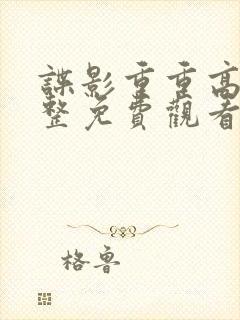 諜影重重高
整免費觀看
格魯